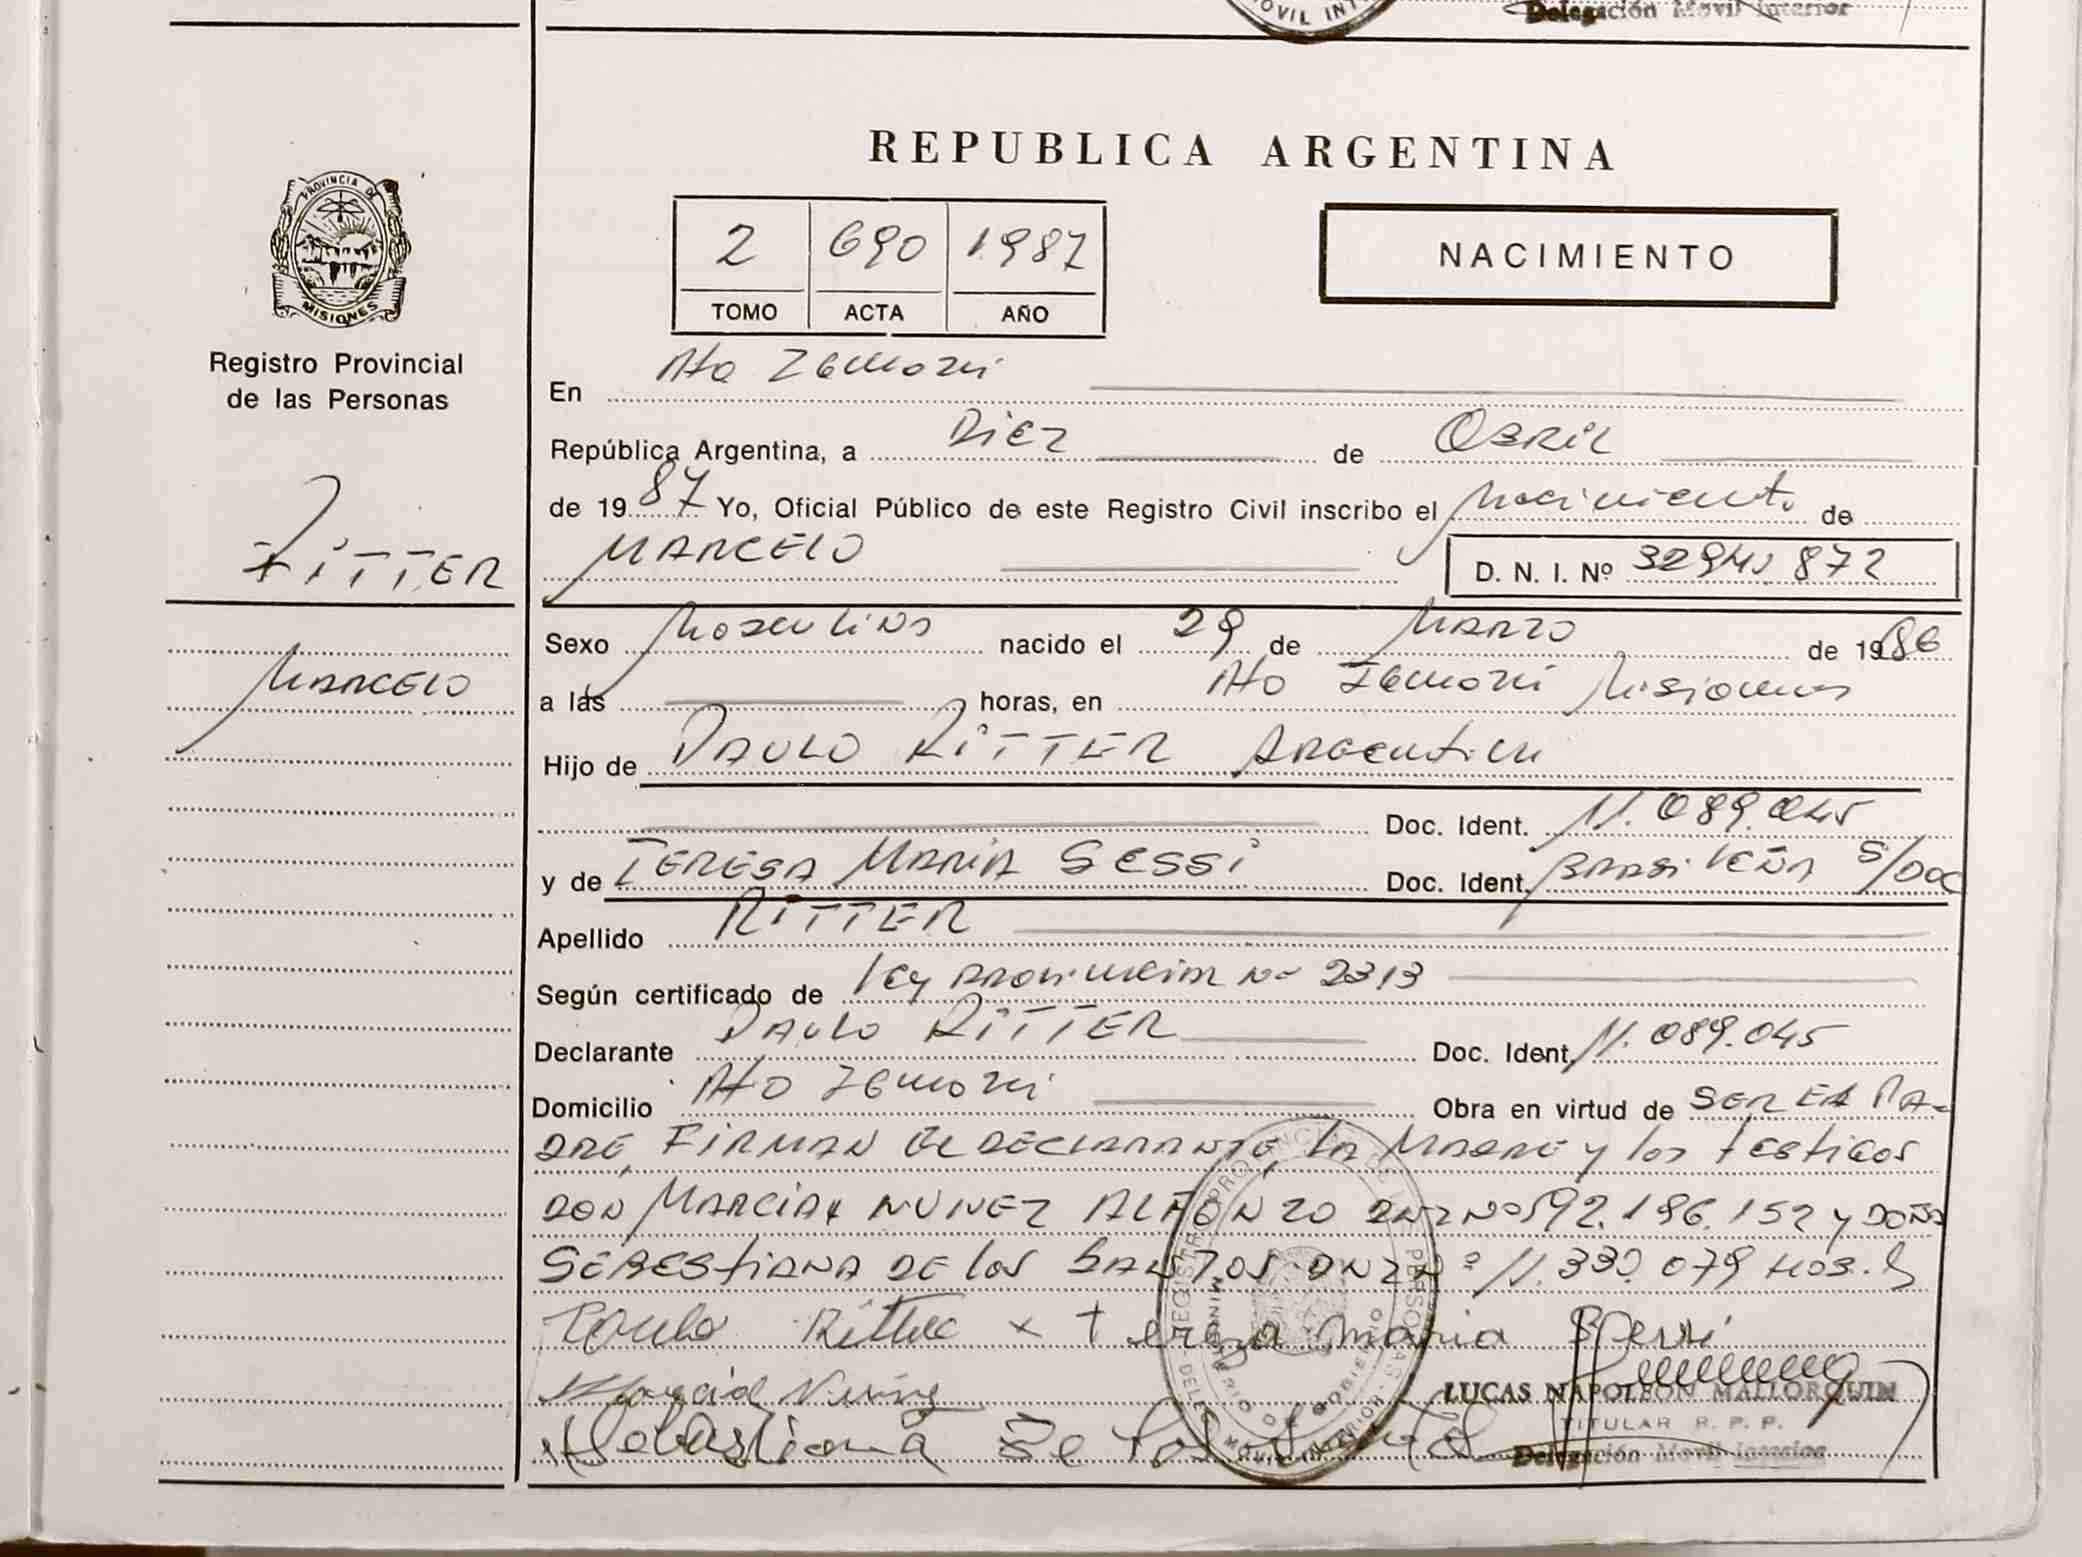 MOVIL INT
Delegación Movil Interior
REPUBLICA ARGENTINA
PROVINCIA DE
MISIONES
Registro Provincial
de las Personas
2 690 1987
TOMO ACTA AÑO
NACIMIENTO
En
República Argentina, a Diez de Abril
de 1987 Yo, Oficial Público de este Registro Civil inscribo el Nacimiento de
RITTER
MARCELO
D. N. I. Nº 872
MARCELO
Sexo Masculino nacido el 29 de MARZO de 1986
a las horas, en Misiones
Hijo de PAULO RITTER Argentino
Doc. Ident. 11.089.045
y de TERESA MARIA SESSI Doc. Ident. BRASILEÑA S/DOC
Apellido RITTER
Según certificado de Ley PROVINCIAL Nº 2313
Declarante PAULO RITTER Doc. Ident. 11.089.045
Domicilio Obra en virtud de SER EL PA-
DRE, FIRMAN EL DECLARANTE, LA MADRE y los testigos
DON MARCIAL NUNEZ ALFONZO DNI Nº 92.196.152 y DOÑA
SEBESTIANA DE los SANTOS DNI Nº 11.330.079
Paulo Ritter x Tereza maria Sessi
Marcial Nuñez
Sebastiana de los Santos
LUCAS NAPOLEON MALLORQUIN
TITULAR R. P. P.
Delegación Movil Interior
REGISTRO PROVINCIAL DE LAS PERSONAS
MINISTERIO DE GOBIERNO
MOVIL INTERIOR